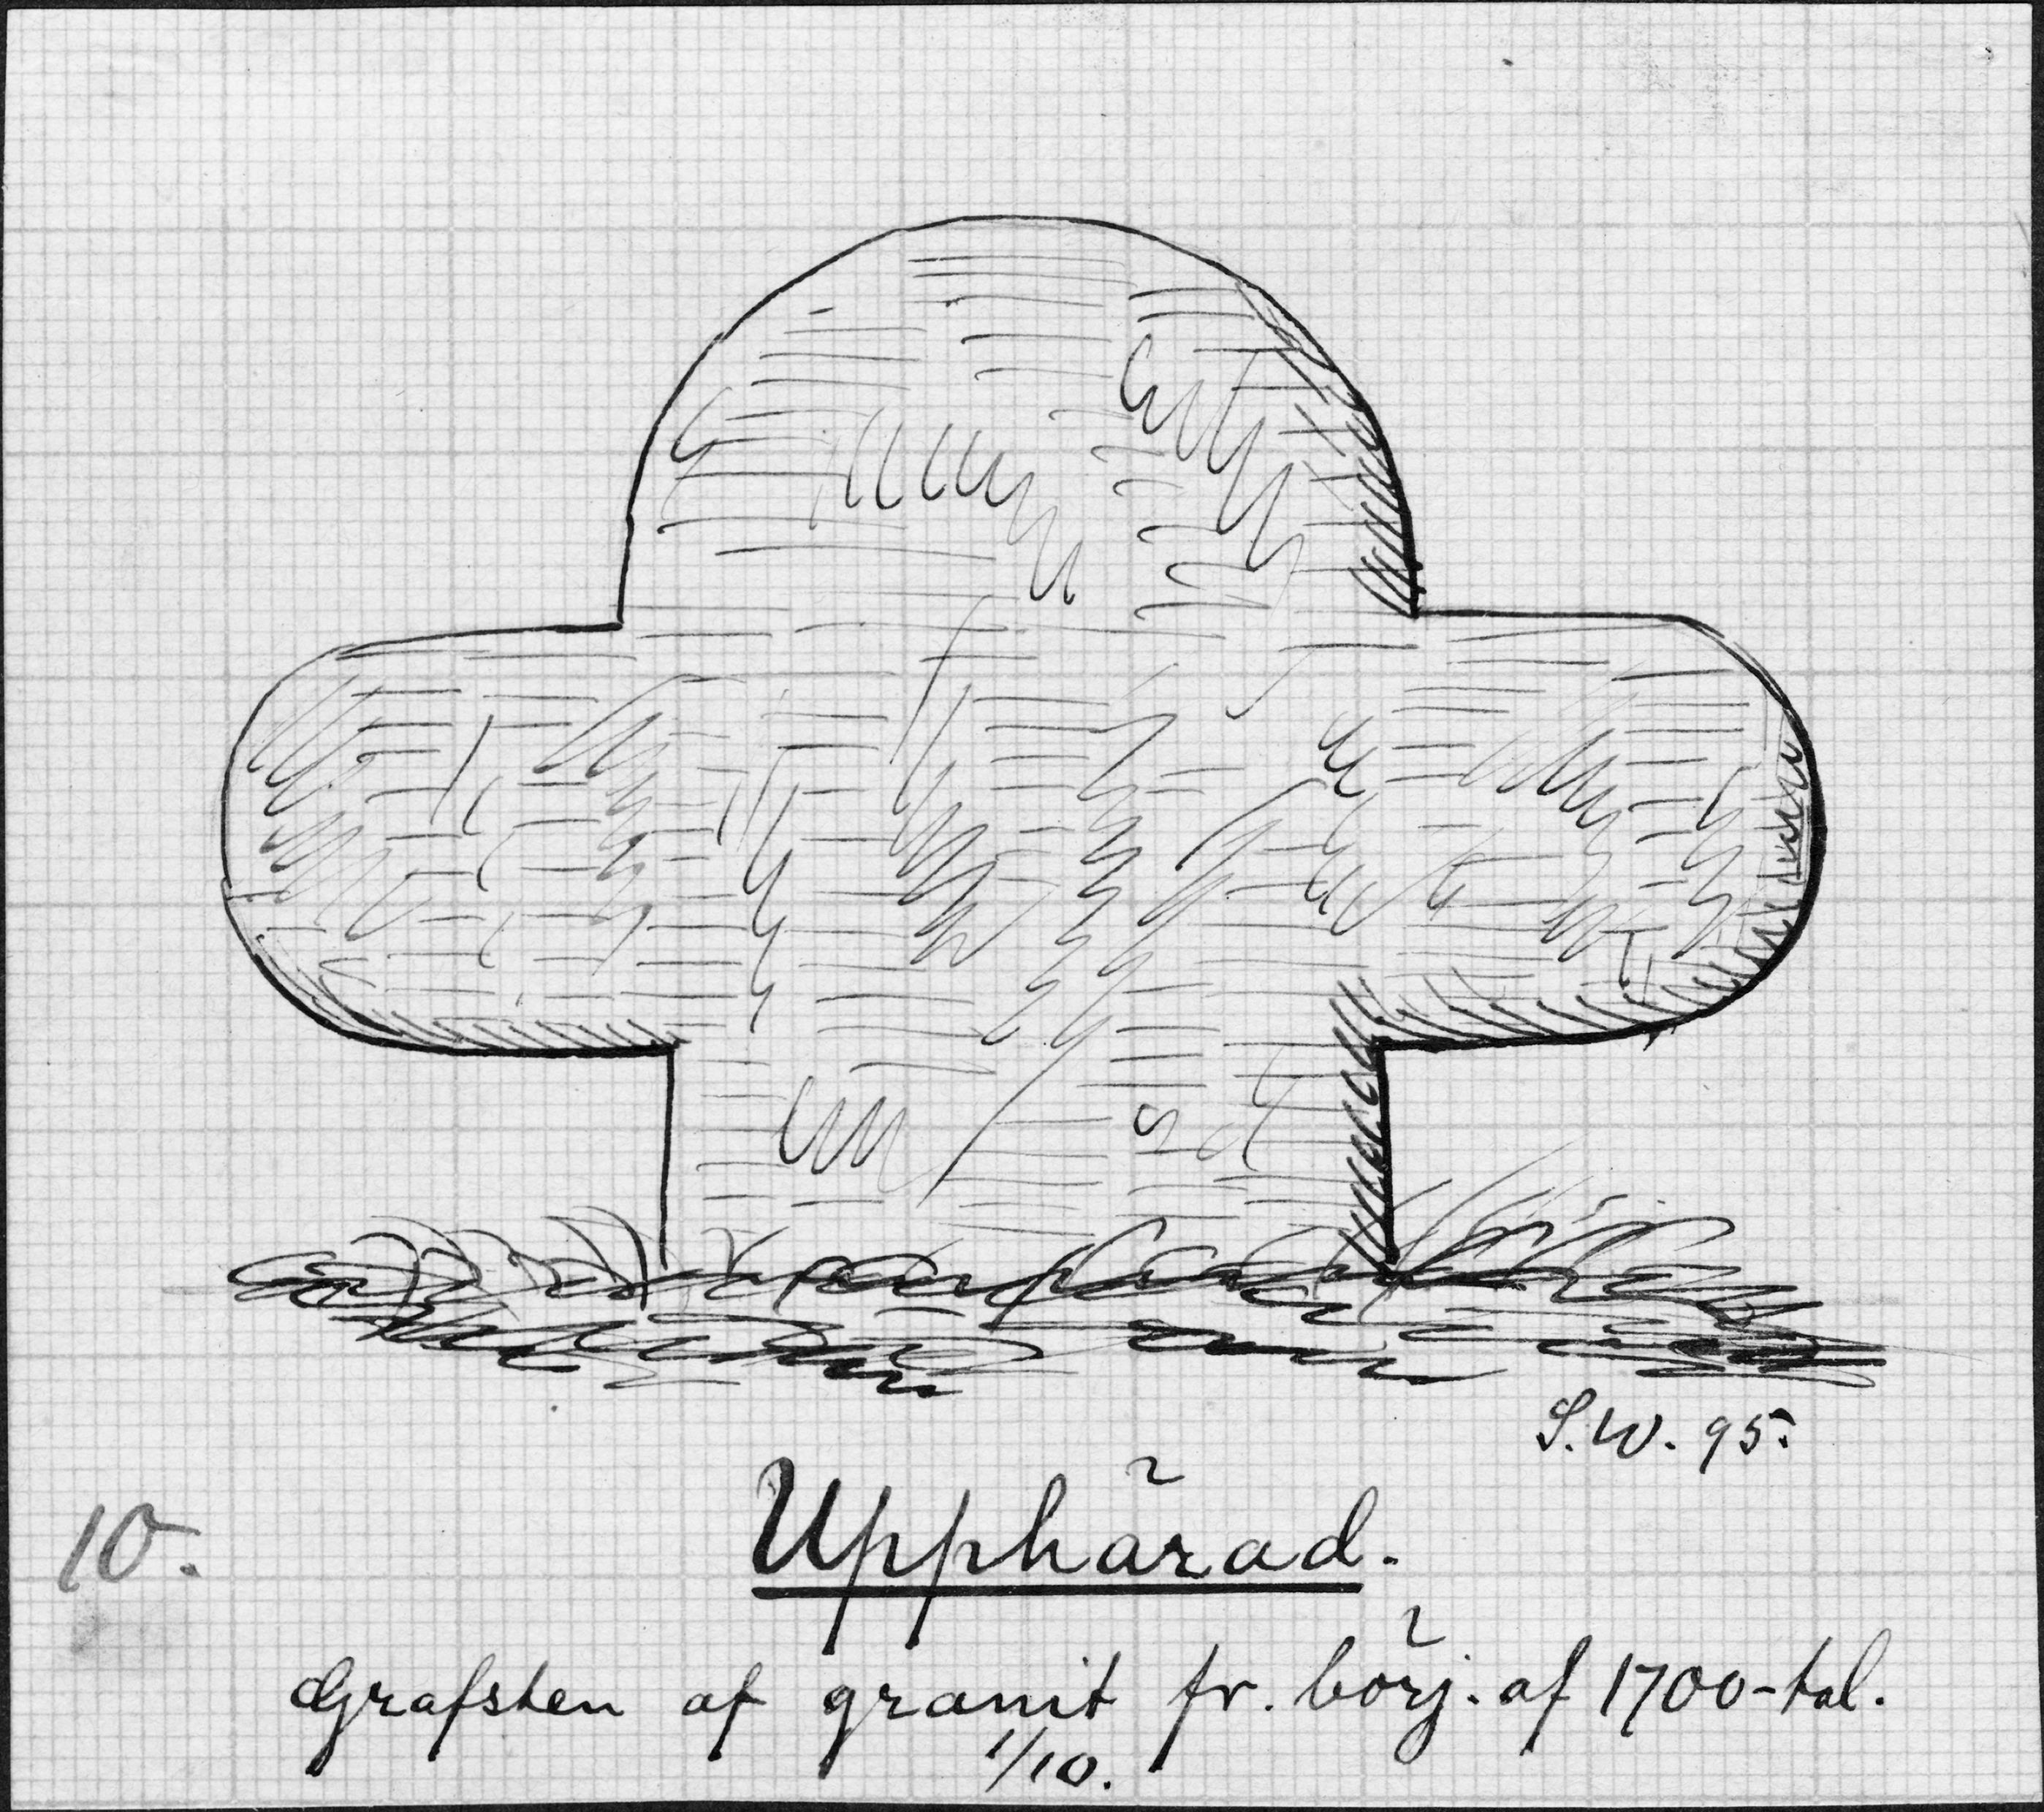 S.W. 95.
10.
Upphärad.
Grafsten af granit fr. börj. af 1700-tal.
1/10.